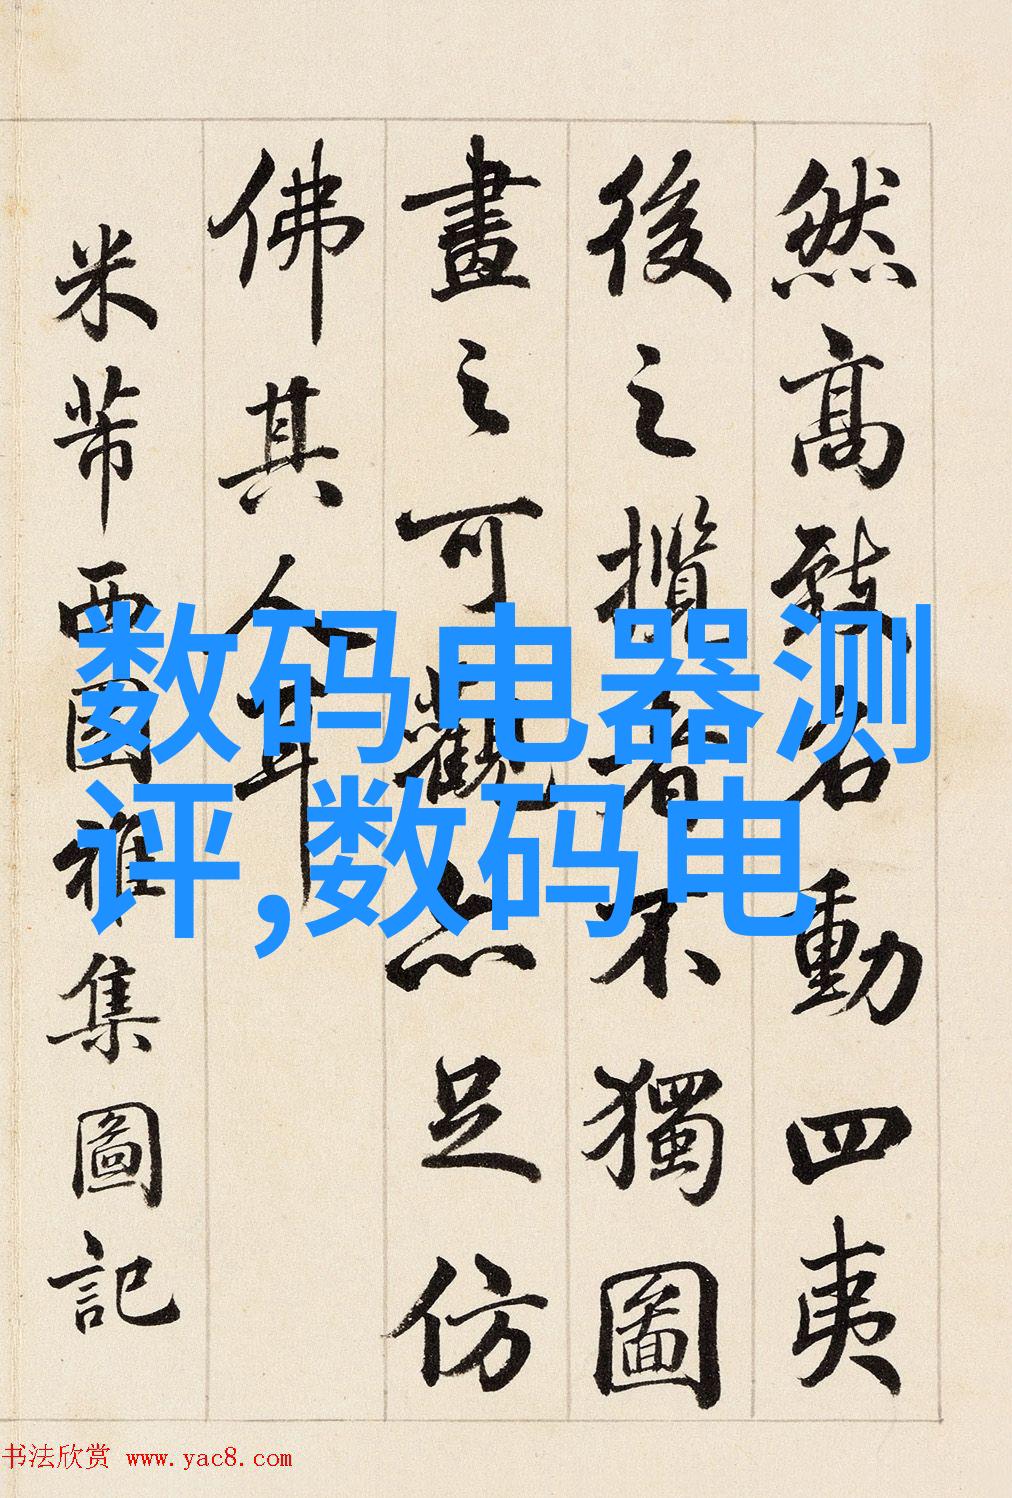 然高致名動四夷
後之攬者不獨圖
畫之可觀亦足仿
佛其人耳
米芾西園雅集圖記
数码电器测
评,数码电
书法欣赏 www.yac8.com